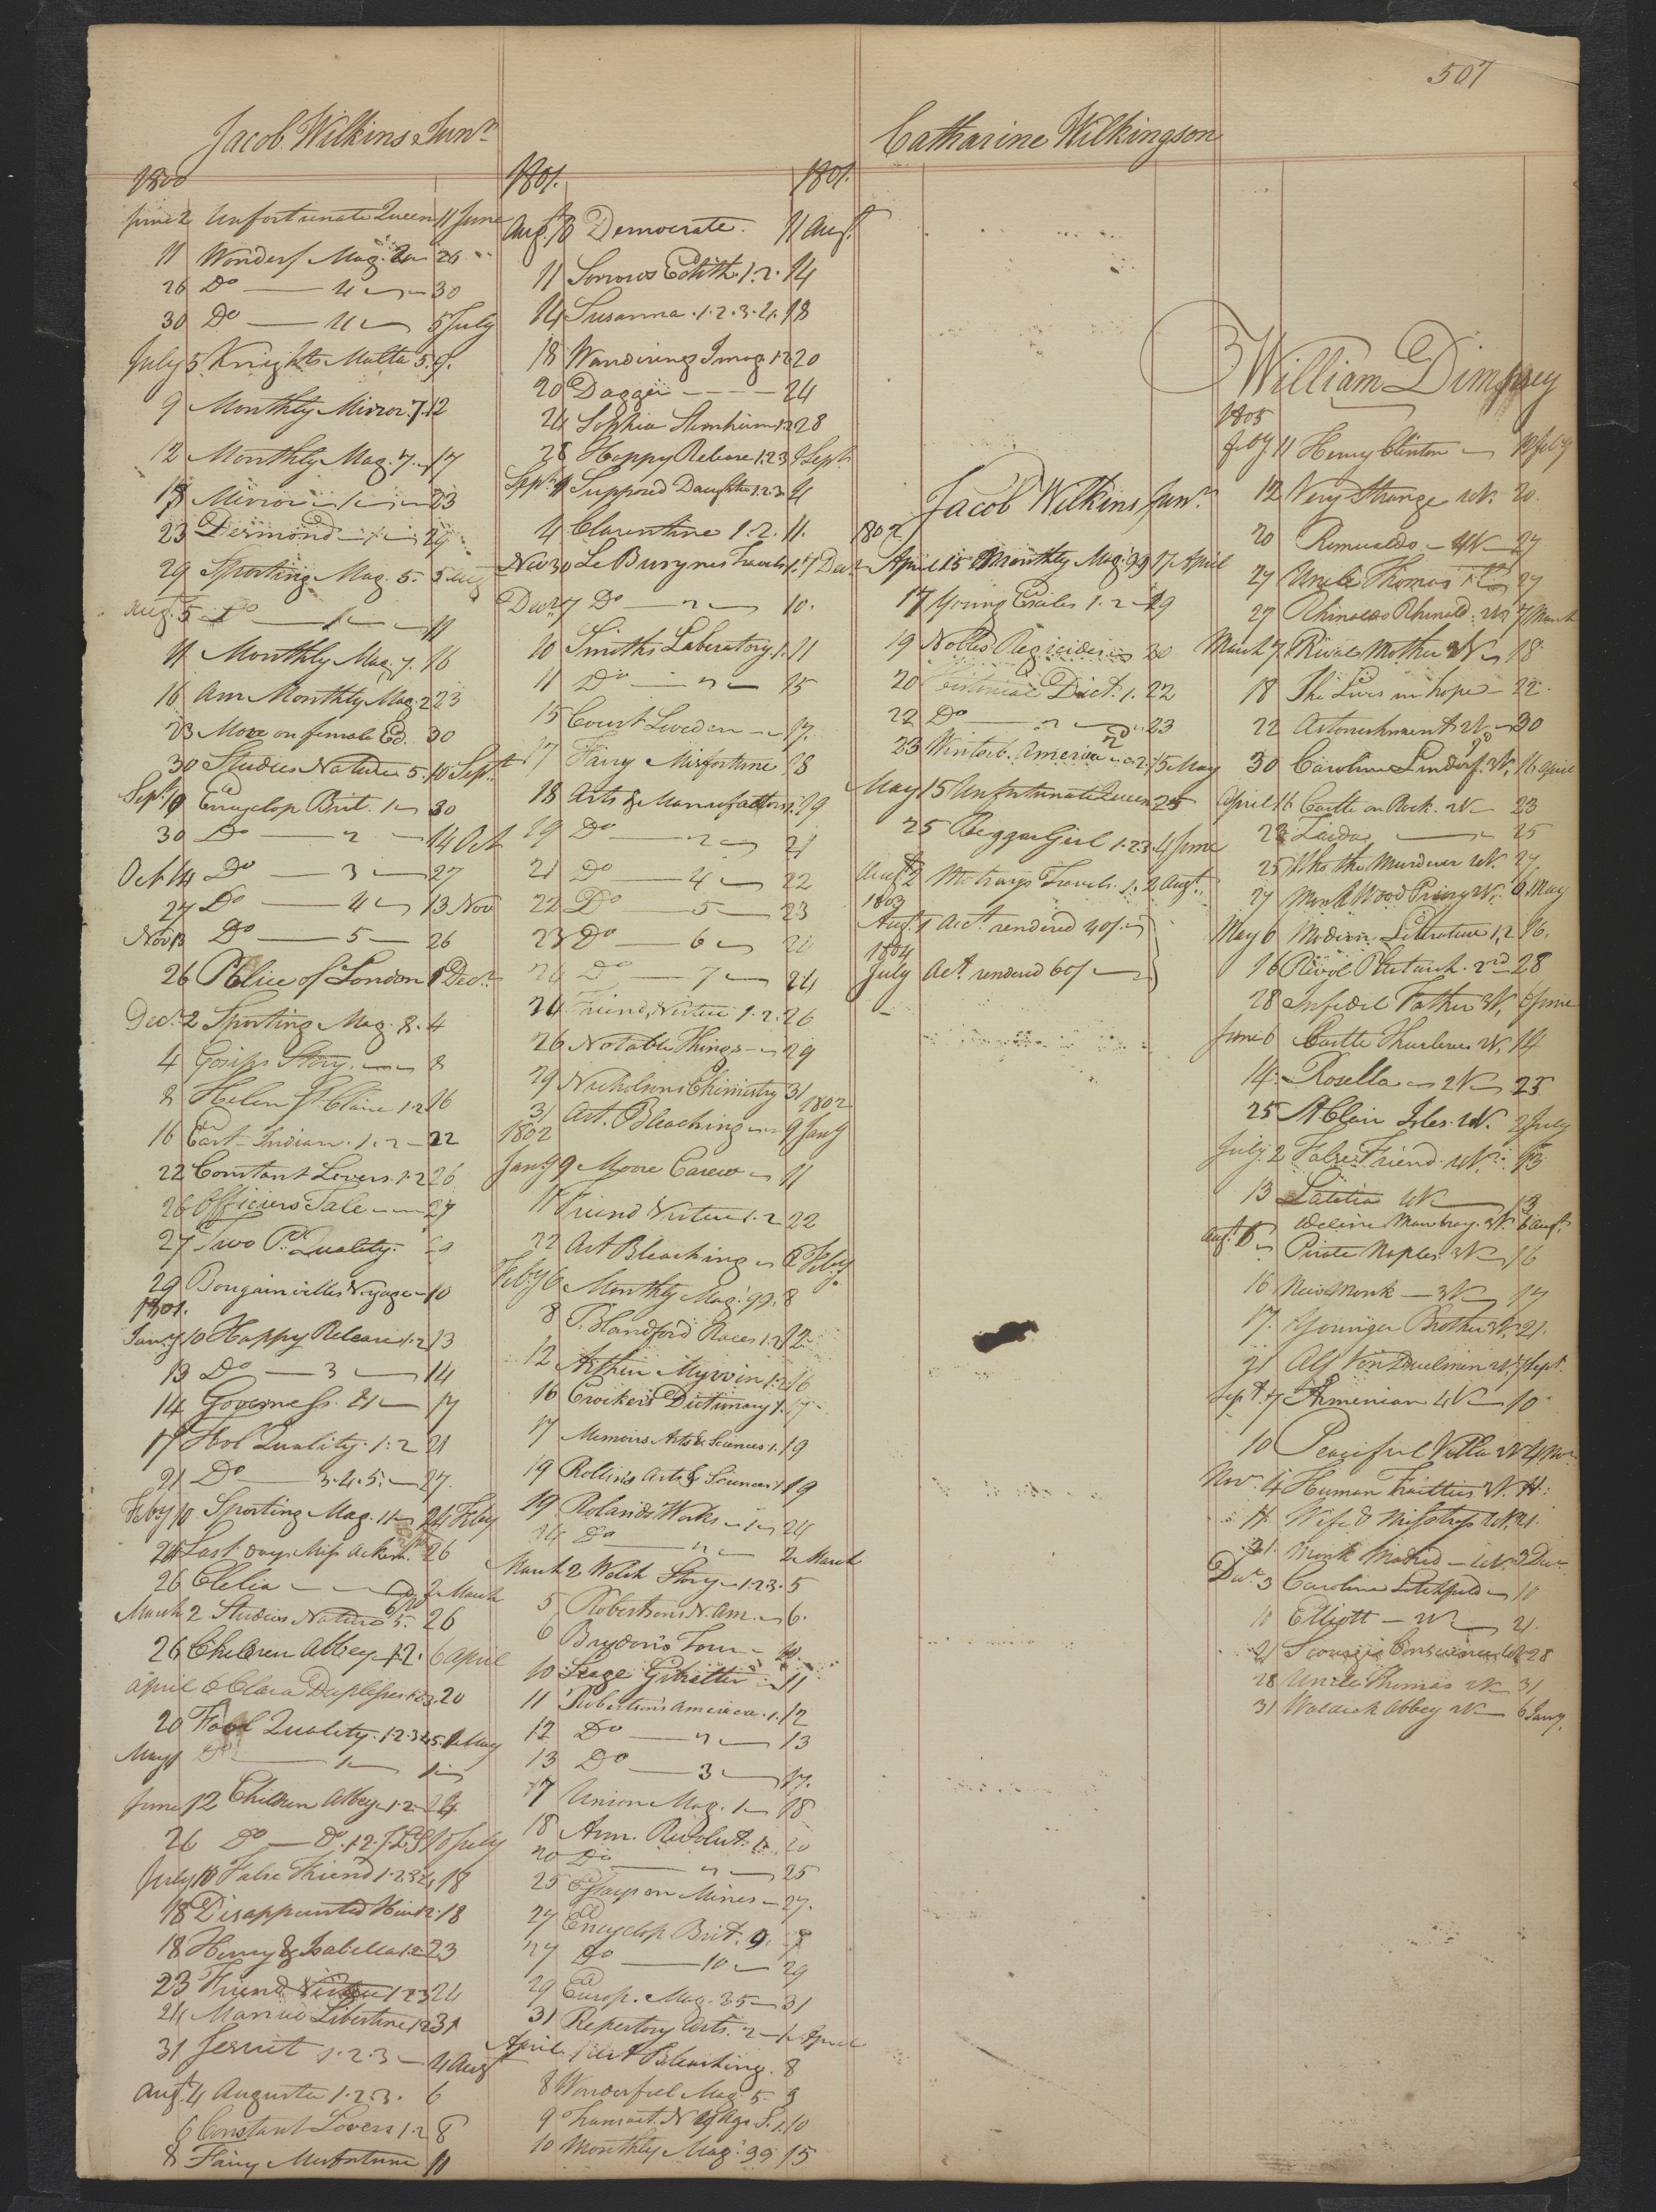 507
Jacob Wilkins Junr
1800
June 2 Unfortunate Queen 11 June
11 Wonderf Mag. 26
26 Do 4 30
30 Do 4 5 July
July 5 Knights Malta 5. 9.
9 Monthly Mirror. 7. 12
12 Monthly Mag. 7. 17
Mirror 1 23
23 Desmond 1 29
29 Sporting Mag. 5. 5 Aug
Aug. 5 Do 1 11
11 Monthly Mag. 7. 16
16 Am Monthly Mag. 2 23
23 More on female Ed. 30
30 Studies Nature 5. 10 Sept
Sept 10 Encyclop Brit. 1 30
30 Do 2 14 Oct
Oct 14 Do 3 27
27 Do 4 13 Nov
Nov 13 Do 5 26
26 Police of London Decr
Decr 2 Sporting Mag. 8. 4
4 Gosips Story. 8
8 Helen St Claire 1.2 16
16 East Indian. 1. 2 22
22 Constant Lovers. 1.2 26
26 Officers Tale 27
27 Two P. Quality.
29 Bougainvilles Voyage 10
1801.
Jany 10 Happy Release 1.2 13
13 Do 3 14
14 Governess. 17
17 Fool Quality. 1.2 21
21 Do 3.4.5. 27.
Feby 10 Sporting Mag. 11 24 Feby
24 Last days Miss 26
26 Clelia 2 March
March 2 Studies Nature 5. 26
26 Children Abbey 1.2. 6 April
April 6 Clara Duplessis 1.2.3. 20
20 Fool Quality. 1.2.3.4.5. 1 May
May 1 Do 1
June 12 Children Abbey 1.2. 26
26 Do Do. 1.2. 10 July
July 10 False Friend 1.2.3.4 18
18 Disappointed Heir 1.2. 18
18 Henry & Isabella 1.2 23
23 Friend Virtue 1.2.3 24
24 Libertine 1.2 31
31 Jesuit 1.2.3 4 Aug
Augt 4 Augusta 1.2.3. 6
6 Constant Lovers 1.2 8
8 Fairy Misfortune 10
1801. 1801.
Augt 10 Democrate. 11 Augt
11 Sorrows Edith. 1.2. 14
14 Susanna. 1.2.3.4. 18
18 Wanderings Imag. 1.2 20
20 Dagger 24
24 Sophia Sternheim 1.2 28
28 Happy Release 1.2.3 Sept
Sept. Supposed Daughter 1.2.3. 4
4 Clarentine 1.2. 11.
Nov 30 Le Bruynes Travels 1. 7 Decr
Decr 7 Do 2 10.
10 Smiths Laboratory 1. 11
11 Do 2 15
15 Court Sweden 17.
17 Fairy Misfortune 18
18 Arts & Manufactors 1. 19
19 Do 2 21
21 Do 4 22
22 Do 5 23
23 Do 6 24
24 Do 7 24
24 Friend Virtue 1.2. 26
26 Notable Things 29
29 Nicholsons Chimistry 31
1802
31 Art. Bleaching 9 Jany
1802
Jany 9 Moore Carew 11
11 Friend Virtue 1.2 22
22 Art Bleaching 6 Feby
Feby 6 Monthly Mag. 99. 8
8 P. Blandford Races 1.2 12
12 Arthur Mervin 1.2 16
16 Crocker's Dictionary 1. 17
17 Memoirs Arts & Sciences 1. 19
19 Rollins Arts & Sciences 1 19
19 Rolands Works 1 24
24 Do 2 2 March
March 2 Welch Story 1.2.3. 5
5 Robertsons N. Am. 6.
6 Brydons Tour 10.
10 Siege Gibralter 11
11 Robertsons America. 1. 12
12 Do 2 13
13 Do 3 17.
17 Union Mag. 1 18
18 Am. Revolut. 1. 20
20 Do 2 25
25 Essays on Mines 27.
27 Encyclop Brit. 9.
27 Do 10 29
29 Europ. Mag. 35 31
31 Repertory Arts. 2 1 April
April 1 Art Bleaching. 8
8 Wonderful Mag 5 9
9 Transact. N. Y. Agr. S. 1. 10
10 Monthly Mag. 99. 15
Catharine Wilkingson
Jacob Wilkins Junr
1802
April 15 Monthly Mag. 99 17 April
17 Young Exiles 1.2 19
19 Nobles Regicides 20
20 Dict. 1. 22
22 Do 2 23
23 Winterb. America 2. 15 May
May 15 Unfortunate Queen 25
25 Beggar Girl 1.2.3. 4 June
Augt 2 Travels. 1. 2 Augt
1803
Augt 1 Act. rendered 40/
1804
July Act. rendered 60/
William Dimpsey
1805
Feby. 11 Henry Clinton 12 Feby
12 Very Strange 20.
20 Romualdo 27
27 Uncle Thomas 27
27 Rhinaldo Rhinald. 7 March
March 7 Rival Mother 18
18 She Lives in hope 22.
22 Astonishment 30
30 Caroline Lindorf. 16 April
April 16 Castle on Rock. 23
23 Zaida 25
25 Who the Murderer 27
27 Monk Wood Priory 6 May
May 6 Modern Literature 1,2 16.
16 Revol Plutarch. 2nd 28
28 Infidel Father 6 June
June 6 Castle 14
14. Rosella 2V 25
25 St Clair Isles. 2 July
July. 2 False Friend 13
13 Latitia 13
Augt 6 Adeline Mowbray. 3V. 6 Augt
Pirate Naples. 3V 16
16 New Monk 3V 17
17. Younger Brother 21.
21 Alf Von Duelmen Sept.
Sept. 7 Armenian 4V 10
10 Peaceful Villa 4 Nov
Nov. 4 Human Frailties 11.
11 Wife & Mistress 21.
21. Monk Madrid 3 Decr
Decr 3 Caroline Litchfield 10
10 Elliott 21.
21 Scourge Conscience 28
28 Uncle Thomas 31
31 Waldick Abbey 6 Jany.